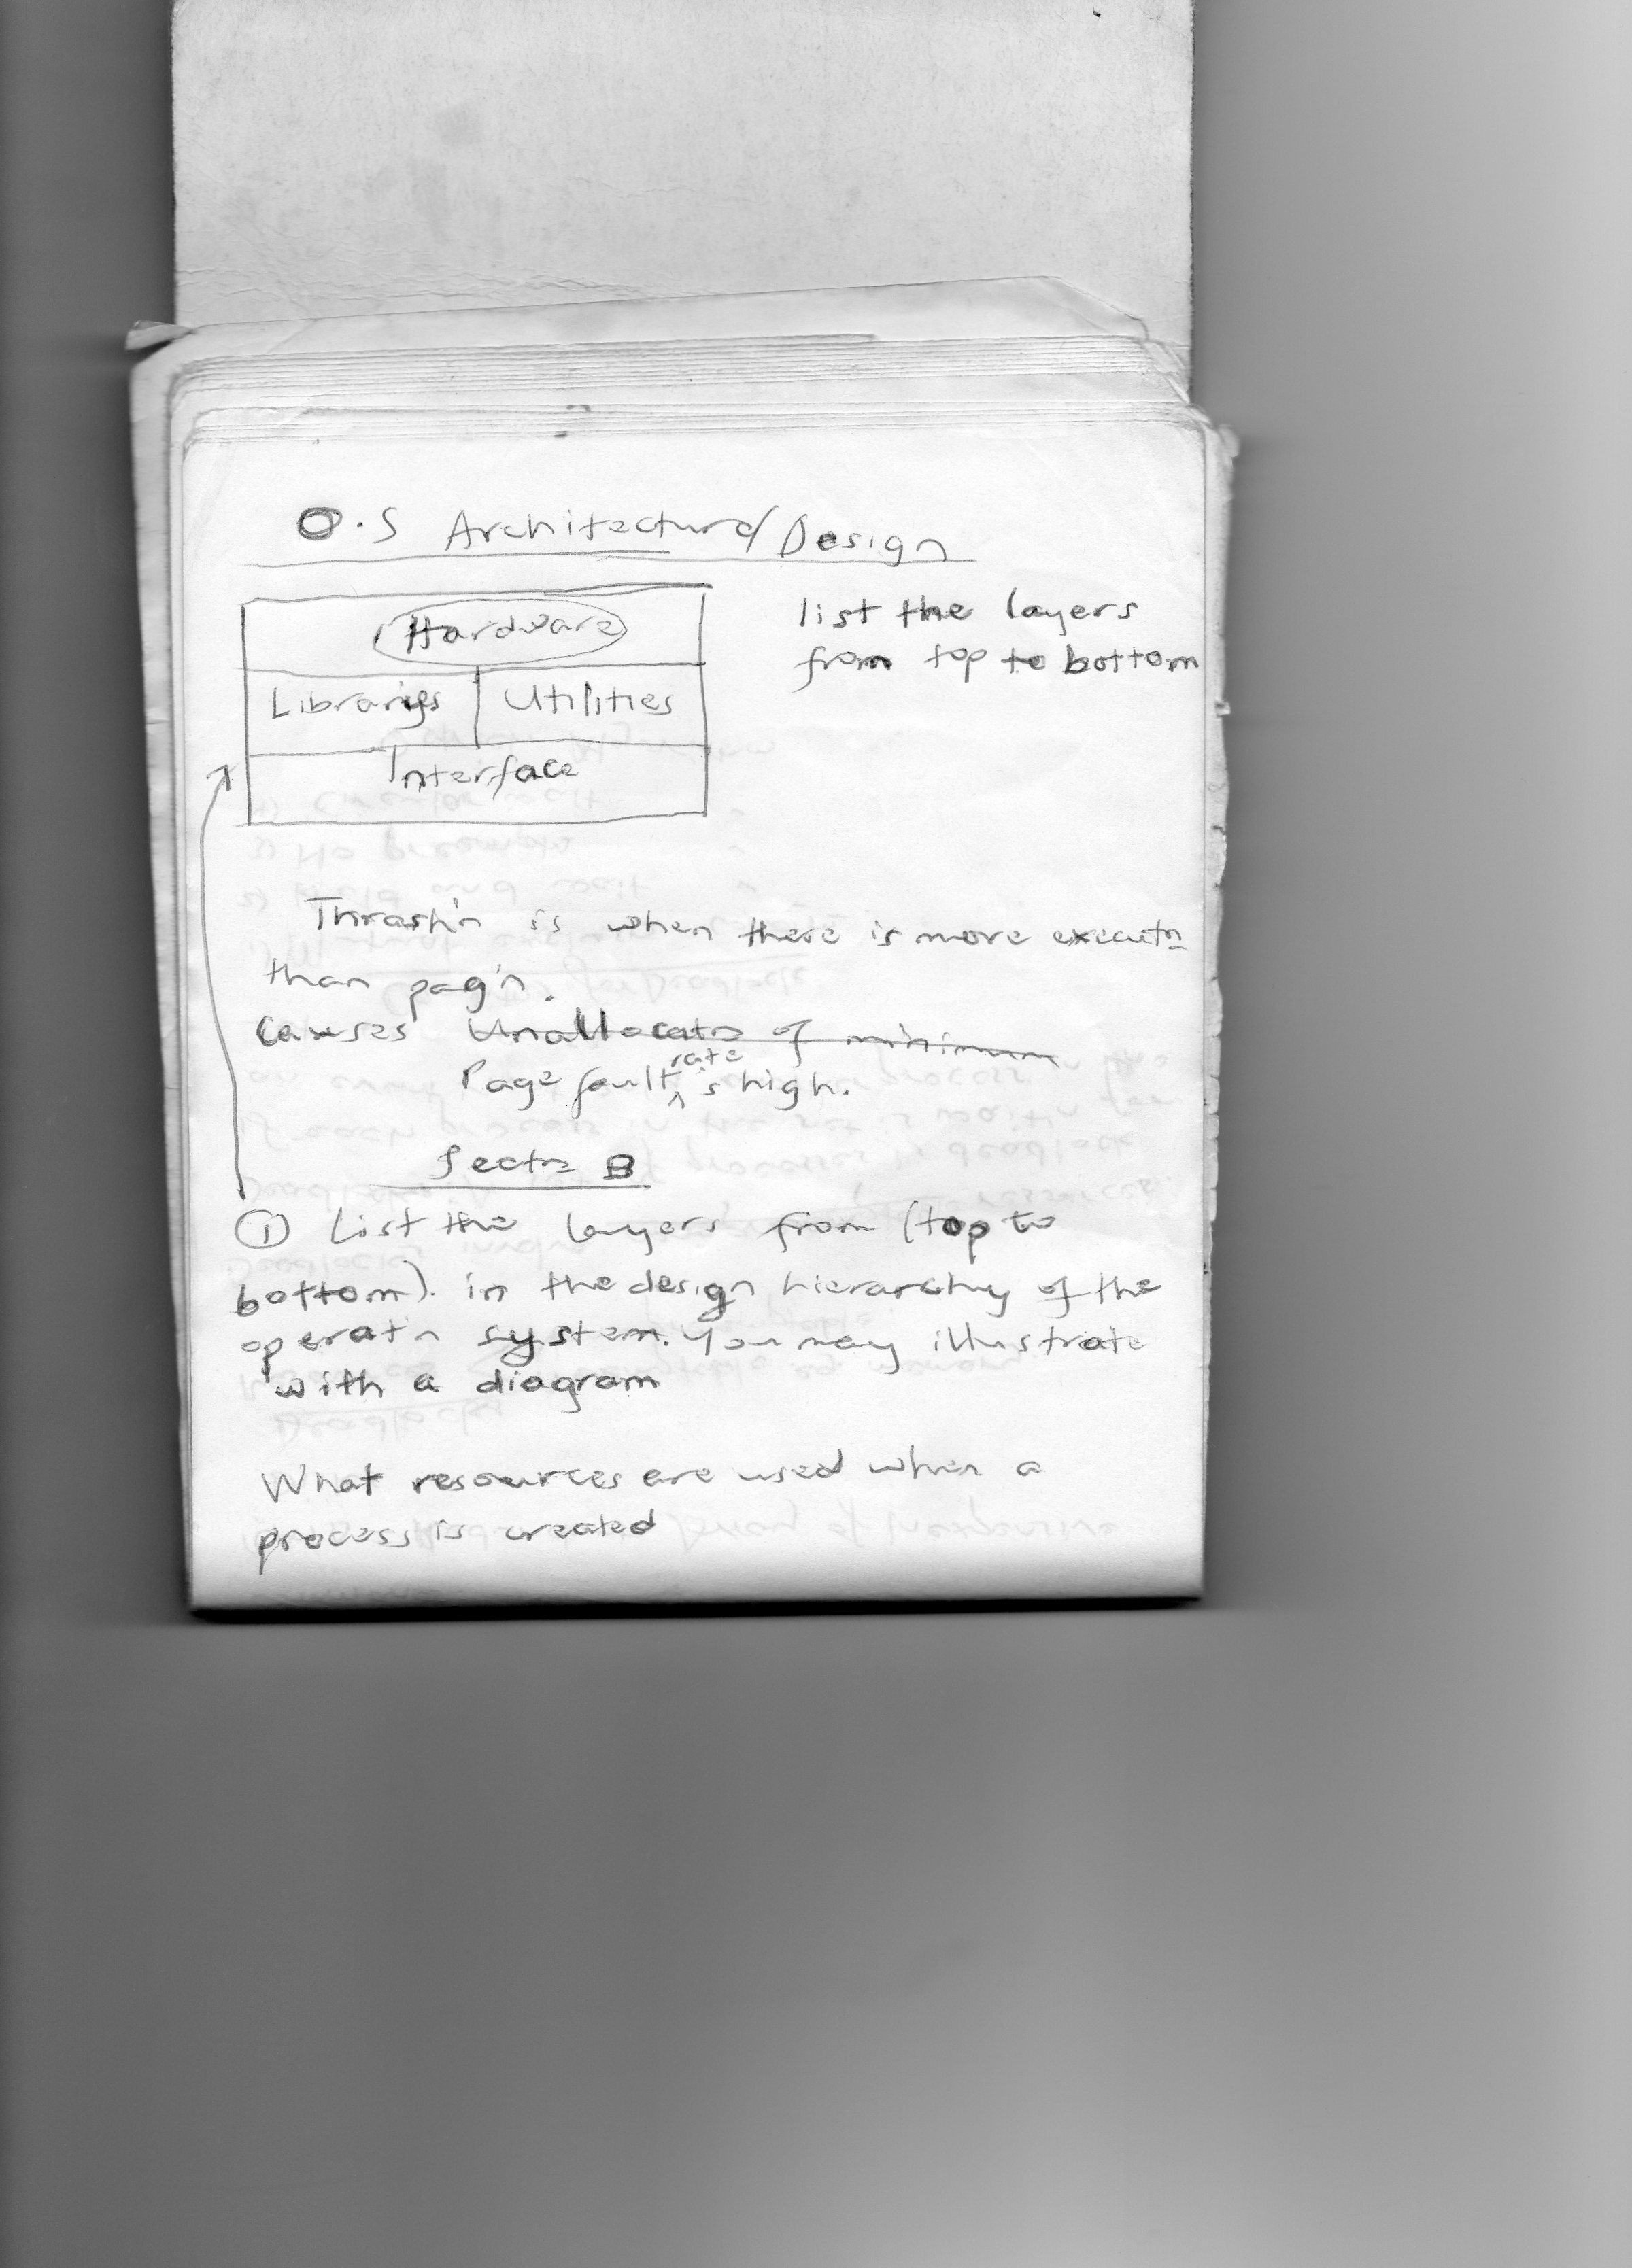 O.S Architecture/Design
Hardware
list the layers
from top to bottom
Libraries Utilities
Interface
Thrash'n is when there is more executn
than pag'n.
Causes Unallocatn of minimum
Page fault rate is high.
Sectn B
① List the layers from (top to
bottom). in the design hierarchy of the
operatn system. You may illustrate
with a diagram
What resources are used when a
process is created